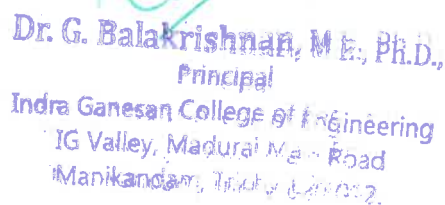 Dr. G. Balakrishnan, M.E., Ph.D.,
Principal
Indra Ganesan College of Engineering
IG Valley, Madurai Main Road
Manikandam,